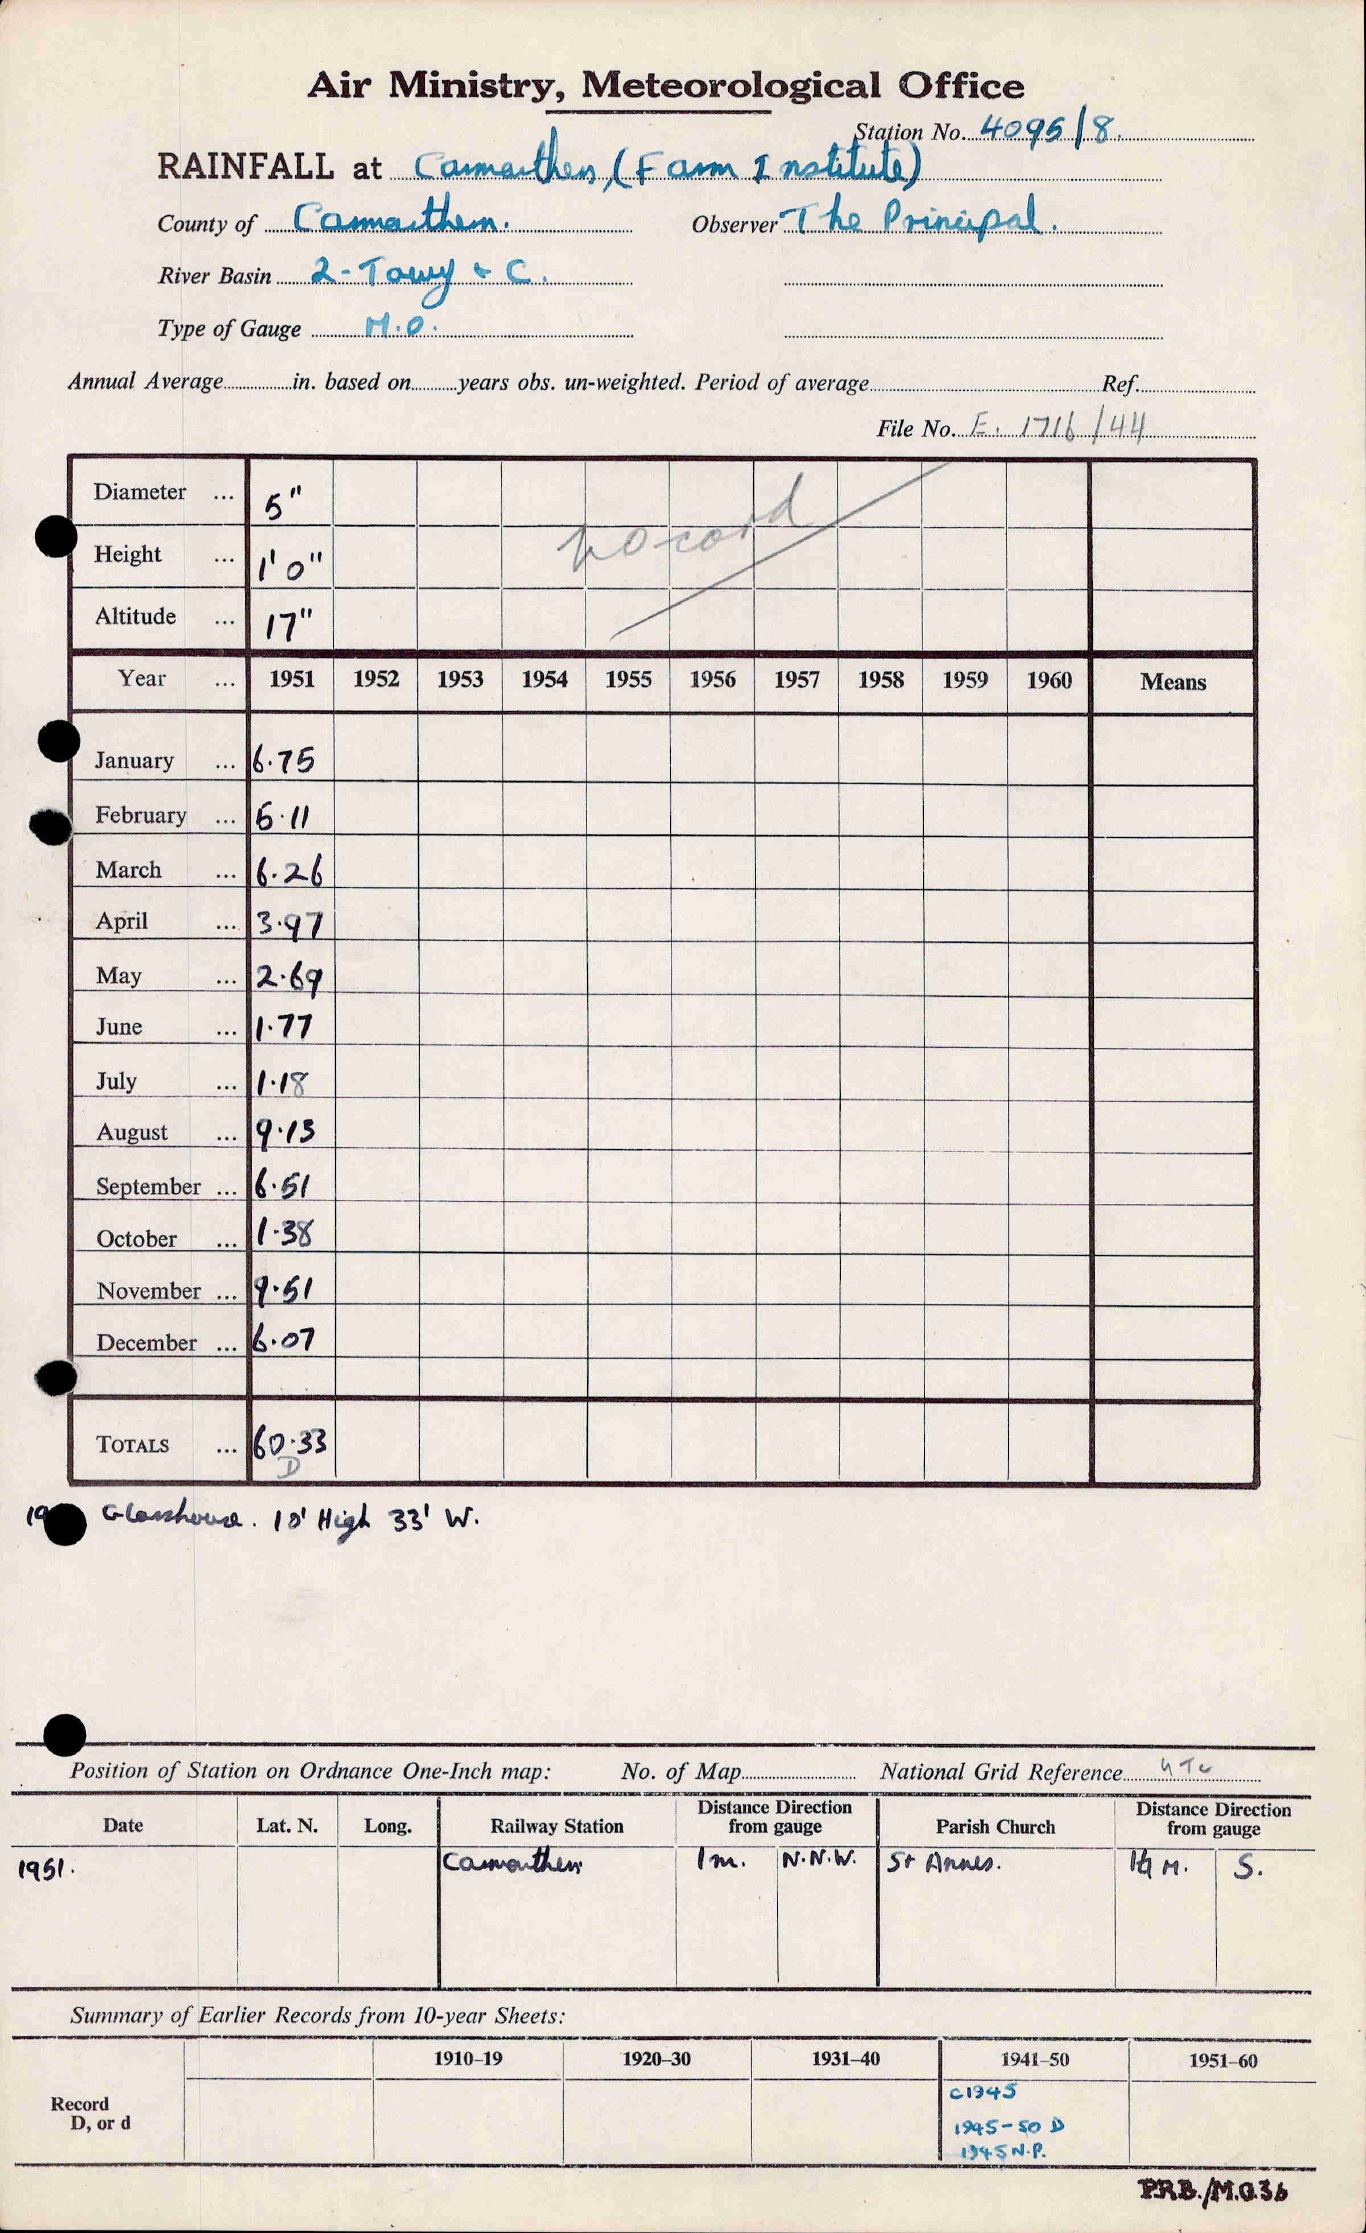 Air Ministry, Meteorological Office
Station No. 4095/8.
RAINFALL at Carmarthen, (Farm Institute)
County of Carmarthen. Observer The Principal.
River Basin 2-Towy & C.
Type of Gauge M.O.
Annual Average in. based on years obs. un-weighted. Period of average Ref.
File No. E. 1716/44
Diameter ... 5"
Height ... 1' 0"
Altitude ... 17"
Year ... 1951 1952 1953 1954 1955 1956 1957 1958 1959 1960 Means
January ... 6.75
February ... 5.11
March ... 6.26
April ... 3.97
May ... 2.69
June ... 1.77
July ... 1.18
August ... 9.13
September ... 6.51
October ... 1.38
November ... 9.51
December ... 6.07
TOTALS ... 60.33
D
19 Glasshouse. 10' High 33' W.
Position of Station on Ordnance One-Inch map: No. of Map National Grid Reference
Date Lat. N. Long. Railway Station Distance Direction from gauge Parish Church Distance Direction from gauge
1951. Carmarthen 1m. N.N.W. St Annes. 1¼ M. S.
Summary of Earlier Records from 10-year Sheets:
1910–19 1920–30 1931–40 1941–50 1951–60
Record
D, or d
c1945
1945-50 D
1945 N.P.
P.R.B./M.O.36